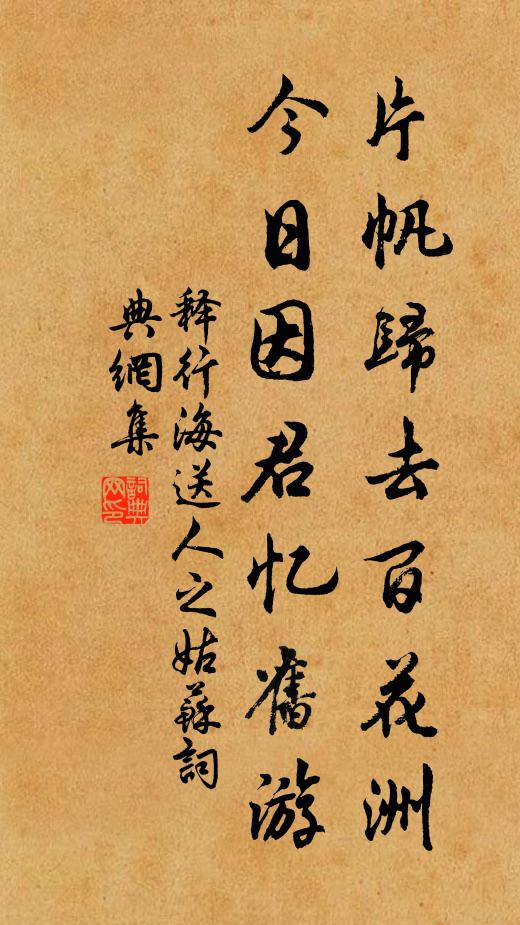 片帆歸去百花洲
今日因君忆舊游
释行海送人之姑蘇詞
典網集
詞典
网印